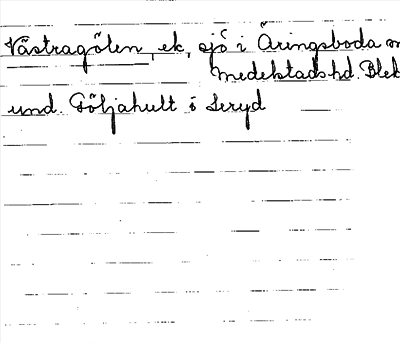 Västragölen, ek, sjö i Åringsboda
Medelstads hd. Blek
und. Göljahult i Seryd